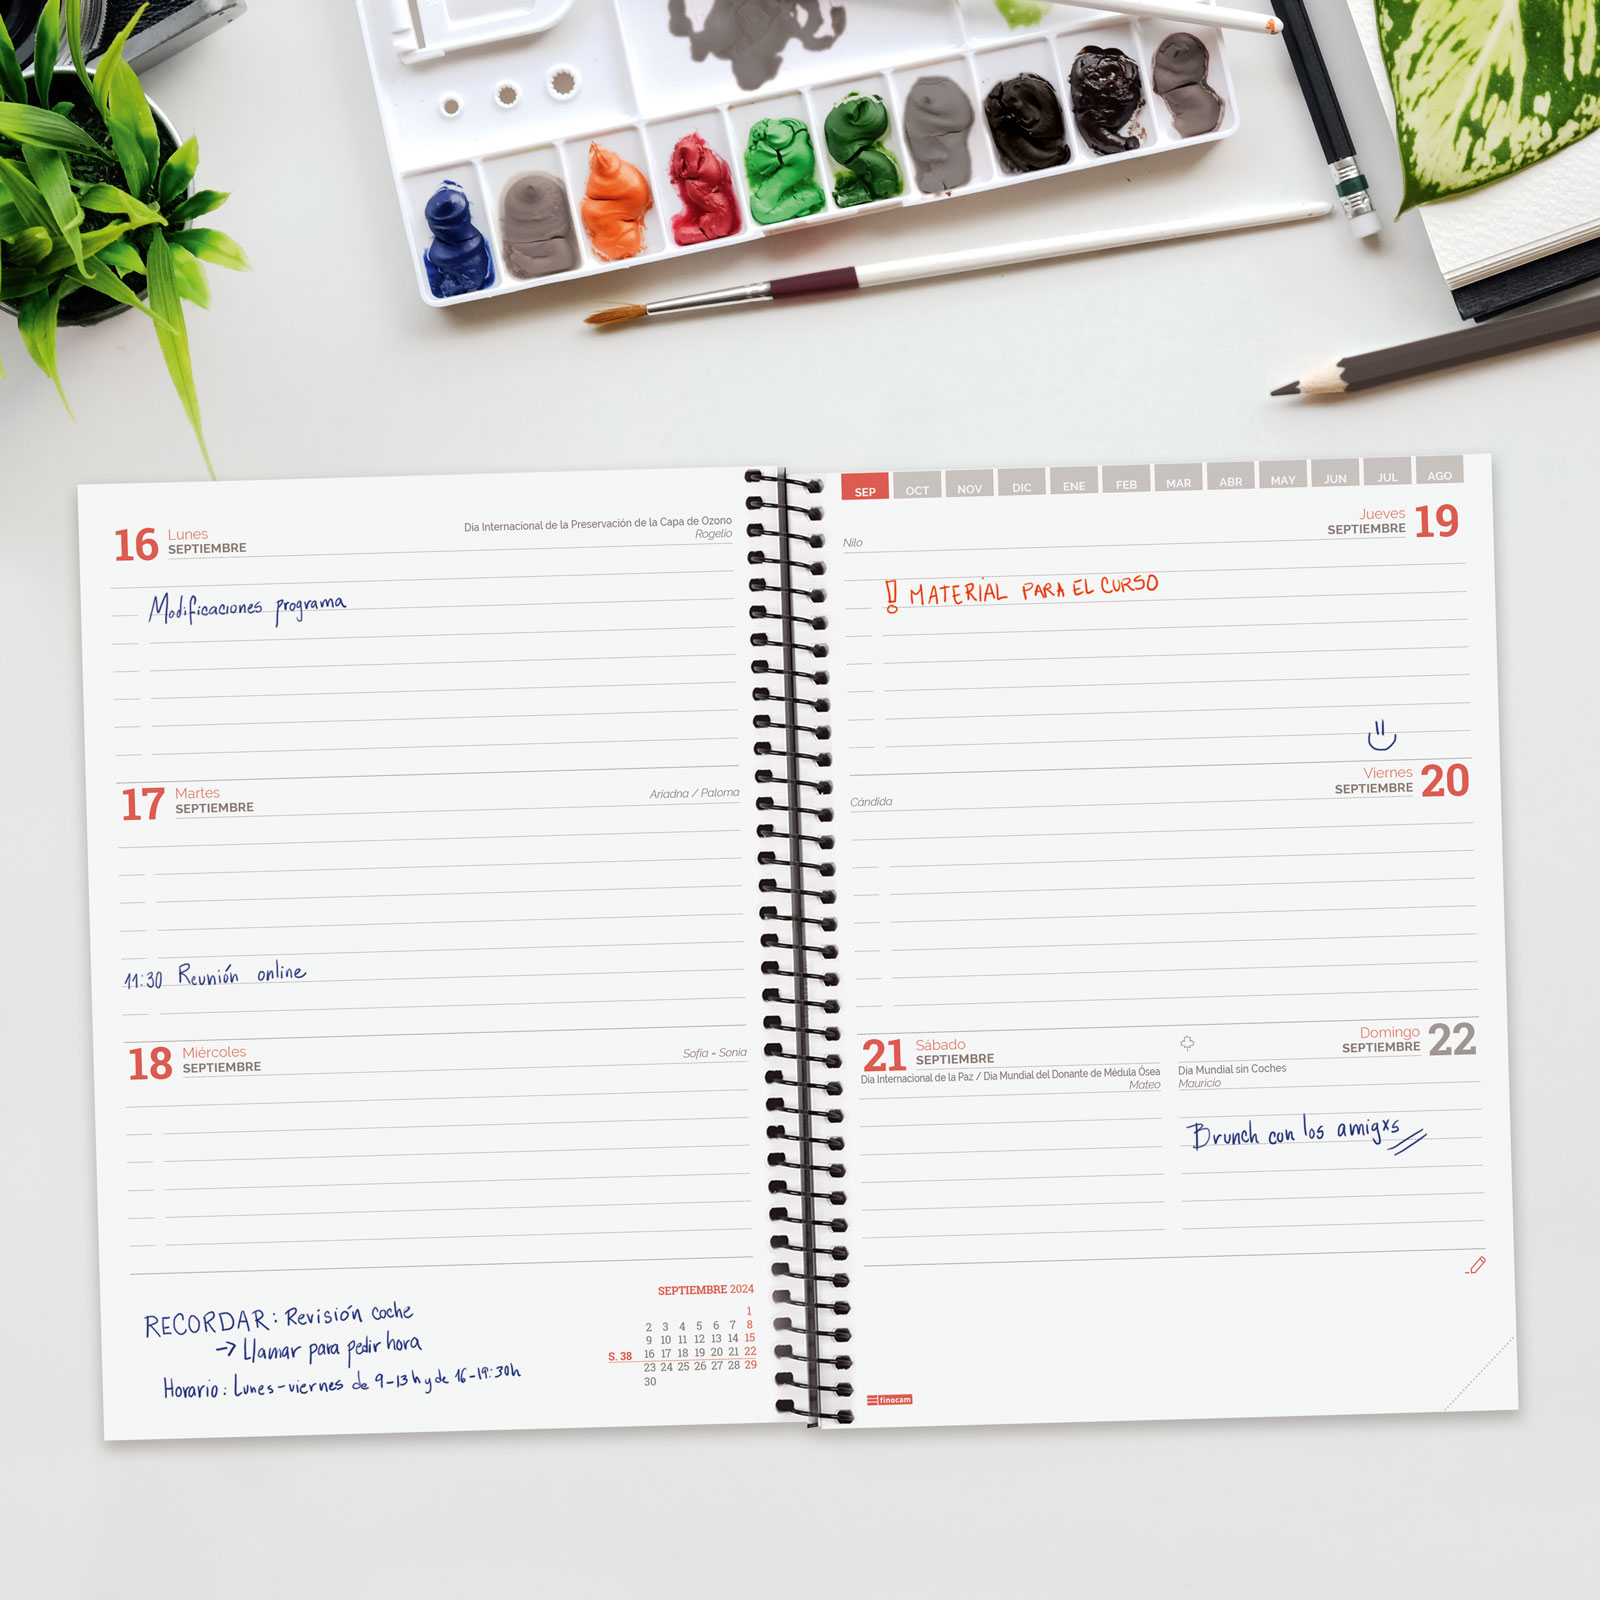 16 Lunes
SEPTIEMBRE
Día Internacional de la Preservación de la Capa de Ozono
Rogelio
Modificaciones programa
17 Martes
SEPTIEMBRE
Ariadna / Paloma
11:30 Reunión online
18 Miércoles
SEPTIEMBRE
Sofía - Sonia
RECORDAR: Revisión coche
→ Llamar para pedir hora
Horario: Lunes-viernes de 9-13h y de 16-19:30h
SEPTIEMBRE 2024
1
2 3 4 5 6 7 8
9 10 11 12 13 14 15
S. 38 16 17 18 19 20 21 22
23 24 25 26 27 28 29
30
SEP OCT NOV DIC ENE FEB MAR ABR MAY JUN JUL AGO
Jueves 19
SEPTIEMBRE
Nilo
! MATERIAL PARA EL CURSO
Viernes 20
SEPTIEMBRE
Cándida
21 Sábado
SEPTIEMBRE
Día Internacional de la Paz / Día Mundial del Donante de Médula Ósea
Mateo
Domingo 22
SEPTIEMBRE
Día Mundial sin Coches
Mauricio
Brunch con los amigxs
finocam